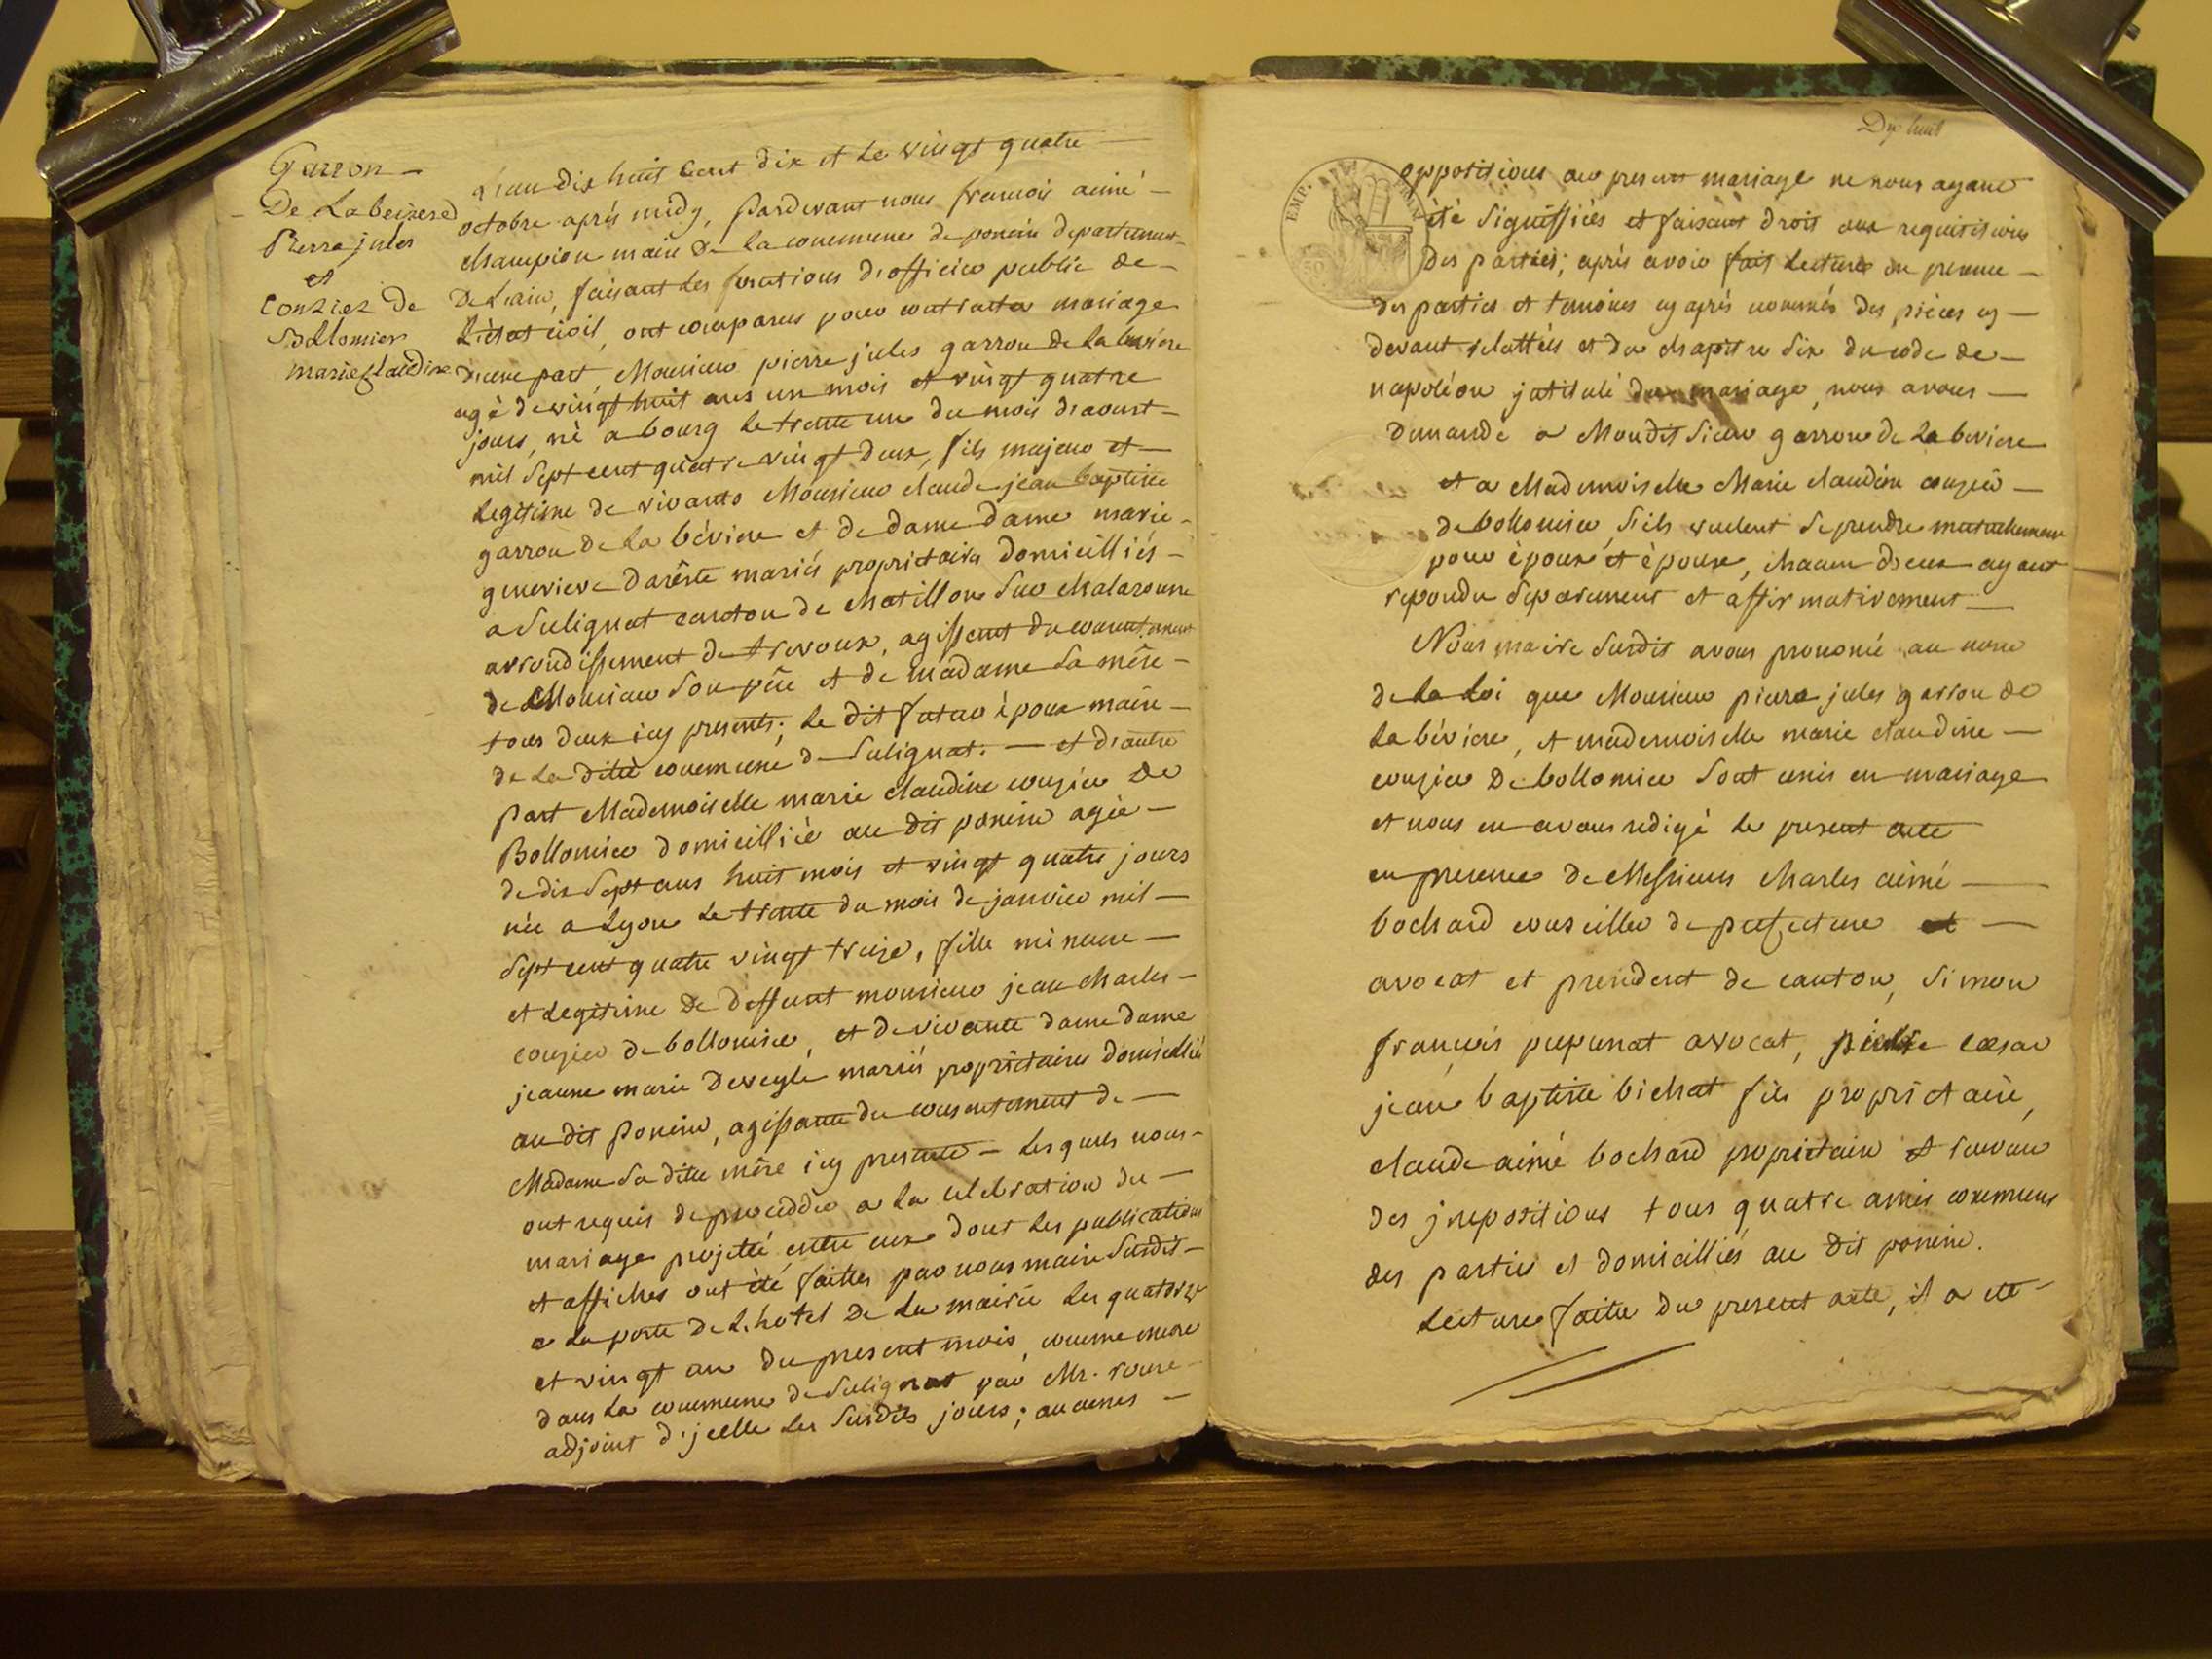 Garron -
De Labeviere
Pierre jules
et
Conzier de
Bollomier
marie Claudine
L'an dix huit cent dix et le vingt quatre
octobre après midy, Pardevant nous francois aimé -
champion maire De la commune de poncin departement
De L'ain, faisant les fonctions d'officier public de -
L'état civil, ont comparus pour contracter mariage
d'une part, Monsieur pierre jules garron de la beviere
agé de vingt huit ans un mois et vingt quatre
jours, né a bourg le trente un du mois d'aoust -
mil sept cent quatre vingt deux, fils majeur et -
Legitime de vivants Monsieur claude jean baptiste
garron de la béviere et de dame dame marie -
genevieve Darêste mariés proprietaires domicilliés -
a Sulignat canton de chatillon sur chalaronne
arrondissement de trevoux, agissant du consentement
de Monsieur son père et de madame sa mère -
tous deux icy presents; le dit futur époux maire -
de la ditte commune de Sulignat. - et d'autre
part Mademoiselle marie claudine conzier de
Bollomier domicilliée au dit poncin agée -
de dix sept ans huit mois et vingt quatre jours
née a Lyon le trente du mois de janvier mil -
sept cent quatre vingt treize, fille mineure -
et legitime de deffunt monsieur jean charles -
conzier de bollomier, et de vivante dame dame
jeanne marie Deveyle mariés proprietaires domicilliés
au dit poncin, agissante du consentement de -
Madame sa ditte mère icy presente - Lesquels nous -
ont requis de procedder a la celebration du -
mariage projetté entre eux dont les publications
et affiches ont été faittes par nous maire susdit -
a la porte de L'hotel de la mairie les quatorze
et vingt un du present mois, comme encore
dans la commune de Sulignat par Mr.
adjoint d'jcelle les susdits jours; aucunes -
Dix huit
EMP.
oppositions au present mariage ne nous ayant
été signiffiées et faisant droit aux requisitions
des parties; après avoir fait lecture en presence -
des parties et temoins cy après nommés des pièces cy -
devant relattées et du chapitre six du code de -
napoléon jntitulé du mariage, nous avons -
demandé a Mondit sieur garron de la beviere
et a Mademoiselle Marie claudine conzier -
de bollomier, s'ils veulent se prendre mutuellement
pour époux et épouse, chacun d'eux ayant
repondu separement et affirmativement -
Nous maire susdit avons prononcé au nom
de la Loi que Monsieur pierre jules garron de
la béviere, et mademoiselle marie claudine -
conzier De bollomier sont unis en mariage
et nous en avons redigé le present acte
en presence de Messieurs charles aimé -
bochard conseiller de prefecture et -
avocat et president de canton, Simon
françois pupunat avocat, pierre cesar
jean baptiste bichat fils proprietaire,
claude aimé bochard proprietaire et
des jmpositions tous quatre amis communs
des parties et domicilliés au dit poncin.
Lecture faitte du present acte, il a eté